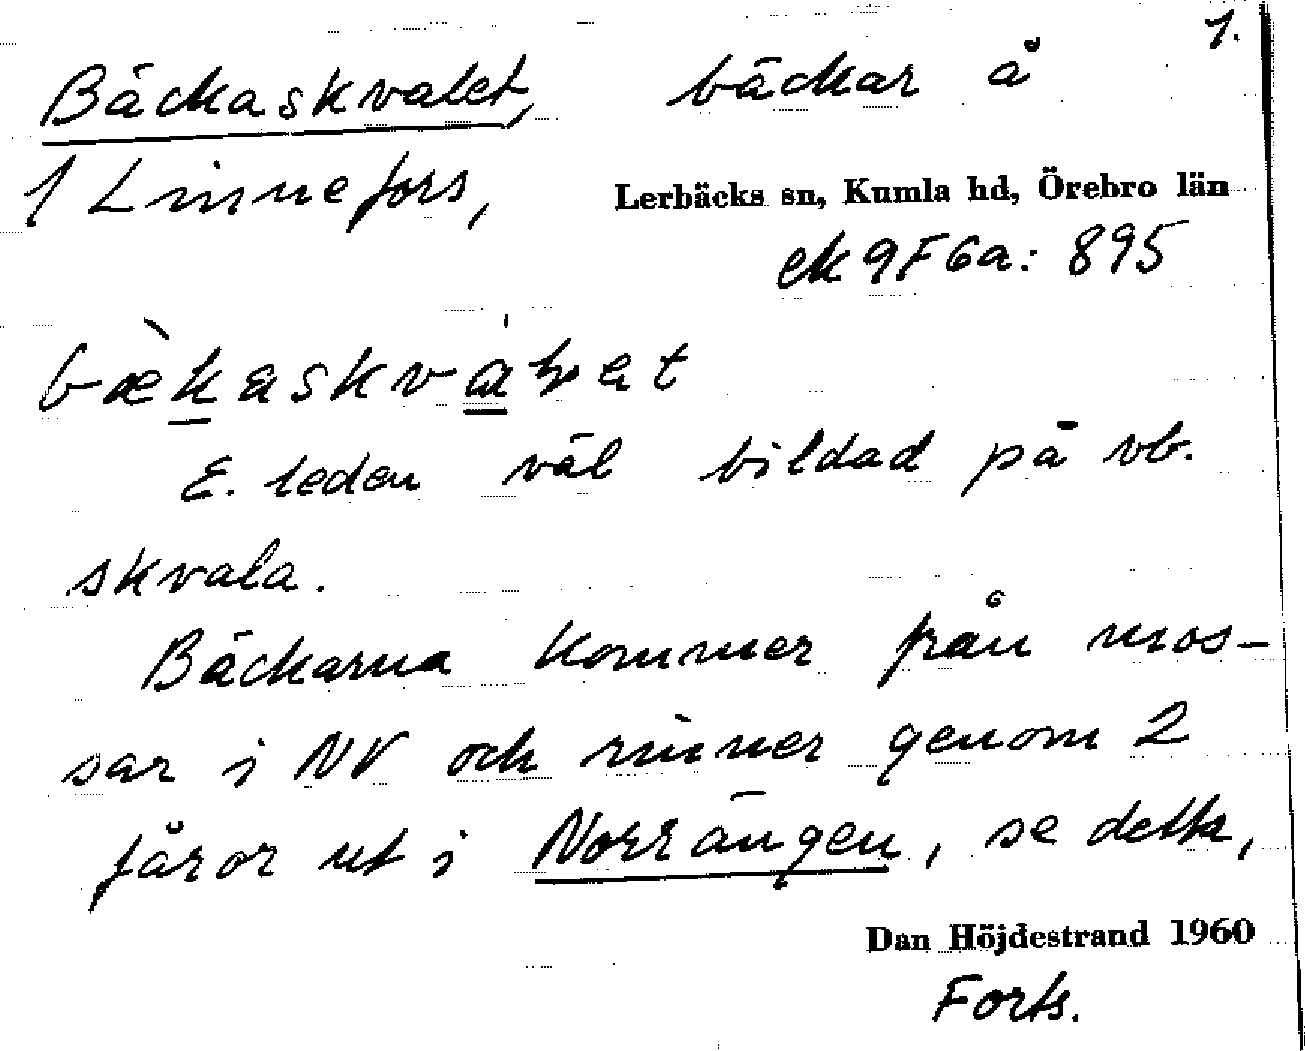 1.
Bäckaskvalet, bäckar å
1 Linnefors,
Lerbäcks sn, Kumla hd, Örebro län
ek 9F6a: 895
E. leden väl bildad på vb.
skvala.
Bäckarna kommer från mos-
sar i NV och rinner genom 2
fåror ut i Norrängen, se detta,
Dan Höjdestrand 1960
Forts.